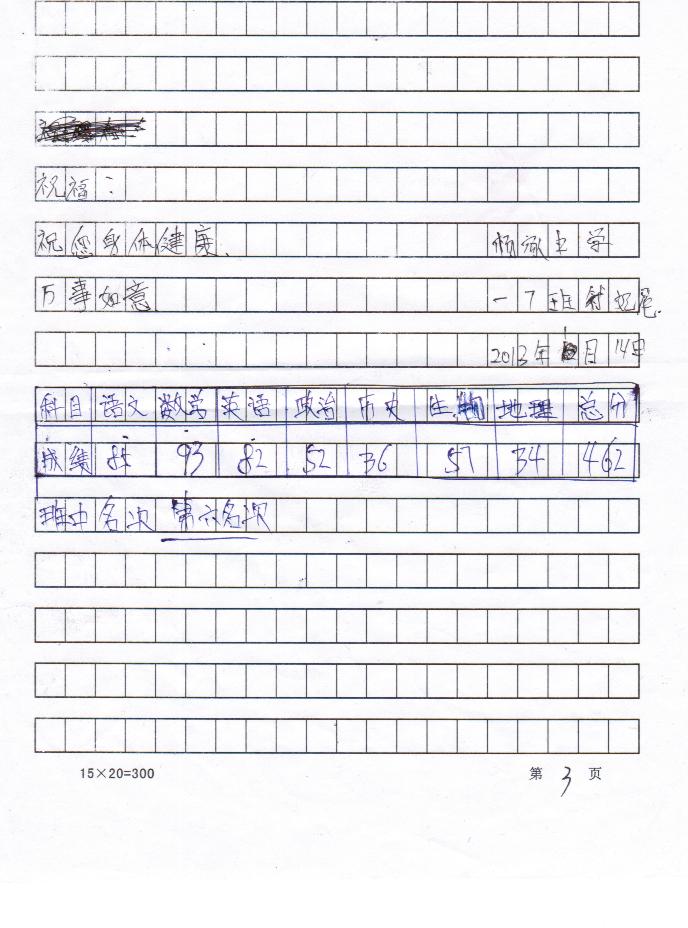 祝福：
祝您身体健康.
万事如意
一7班
2013年 月14日
科目 语文 数学 英语 政治 历史 生物 地理 总分
成绩 85 93 82 52 36 57 34 462
班上名次 第六名次
15×20=300 第 3 页